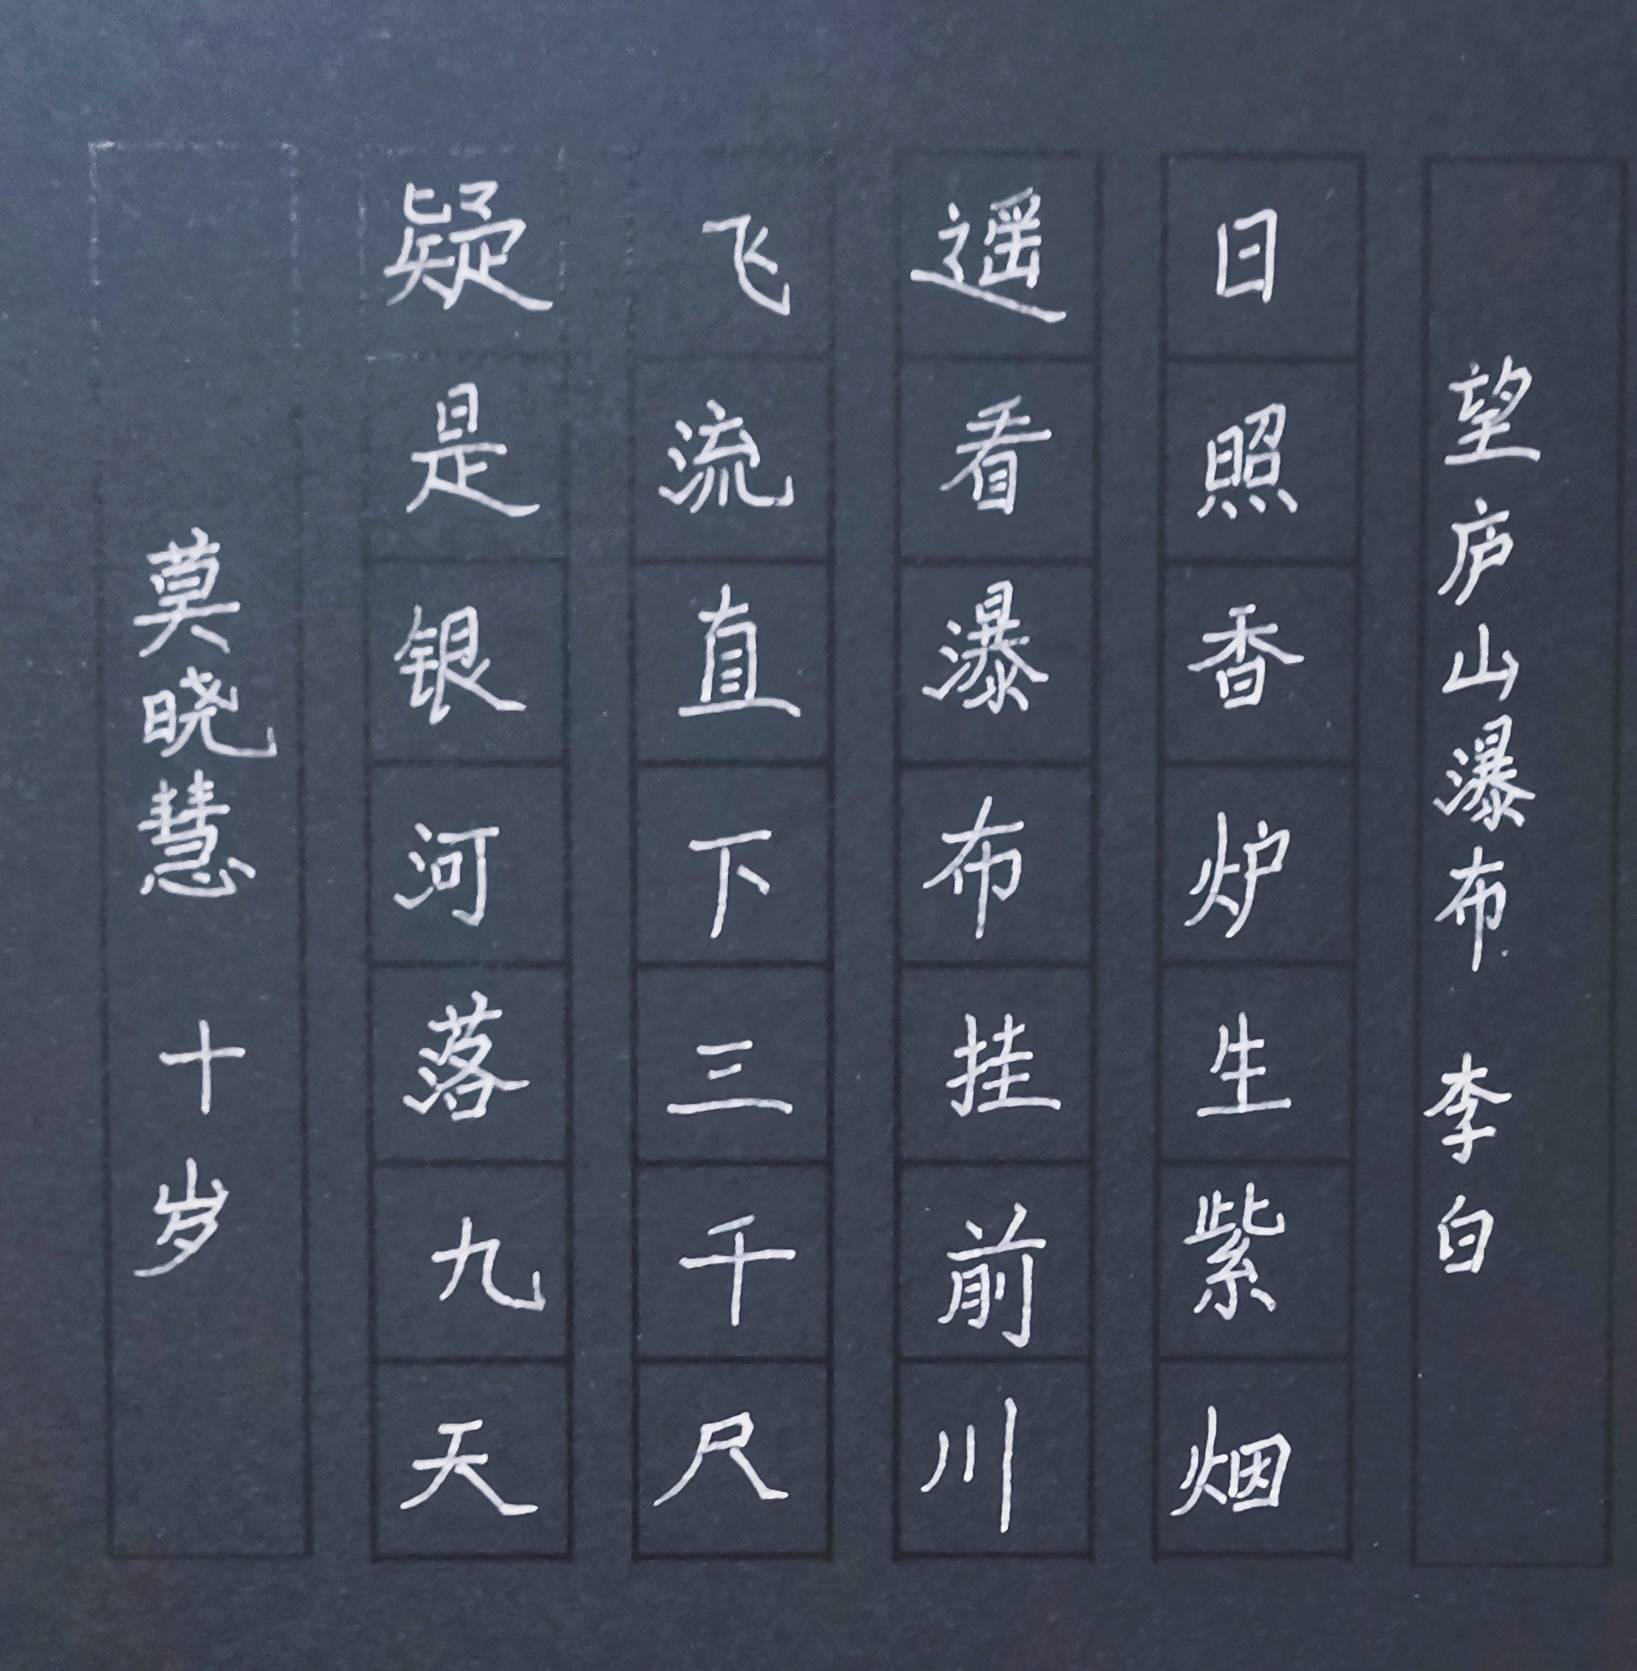 望庐山瀑布 李白
日照香炉生紫烟
遥看瀑布挂前川
飞流直下三千尺
疑是银河落九天
莫晓慧 十岁